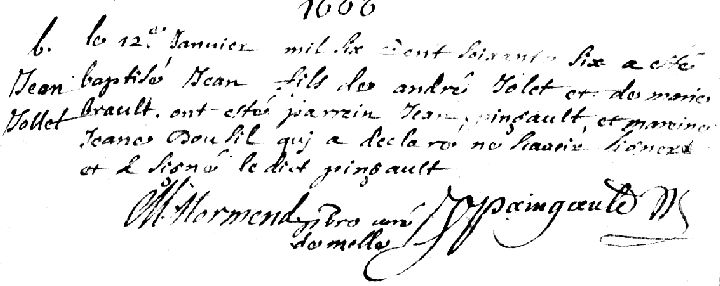 1666
b. le 12.e Janvier mil six Cent soixante six a esté
Jean baptisé Jean fils de andré Jolet et de marie
Jollet brault. ont esté parrein Jean pingault, et mareine
Jeane Dousil qui a declaré ne scavoir signer
et a signé le dict pingault
Normend pbre curé J paingault
de melle